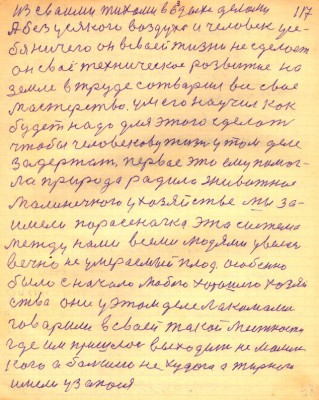 из своими тихоми в вдохе делами 117
А без усякого воздуха и человек у се-
бя ничего он в своей жизни не сделает
он своё техническое розвитие на
земле в труде сотварил в се своё
мастерство. ум его научил как
будет надо для этого сделать
чтобы человекову жизь у том деле
задержать, первае это ему помог-
ла природа радило животное
маленичкого у хозяйстве мы за-
имели поросёначка эта система
между нами всеми людями увели
вечно не умераемый плод. особено
было с начало любого хорошего хозяй
ства они у этом деле лакомами
говарили в сваей такой местности
где им пришлос выходить не мален
кого а бажино не худого а жирного
имели у запоси